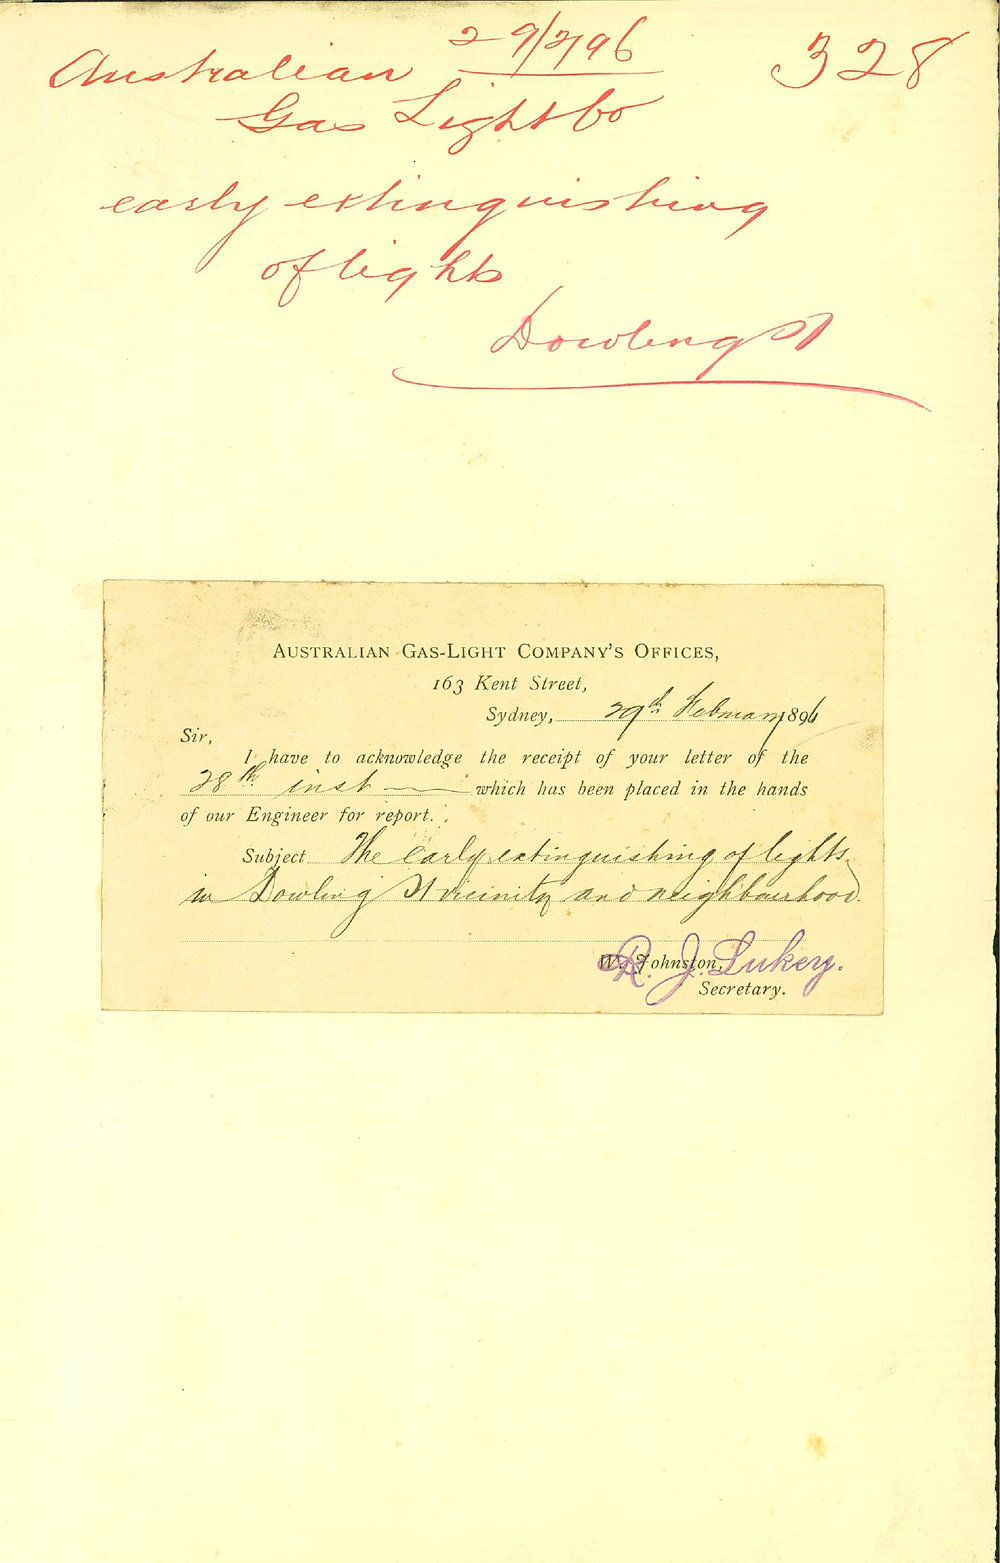 29/2/96
328
Australian
Gas Light Co
early extinguishing
of lights
Dowling St
AUSTRALIAN GAS-LIGHT COMPANY'S OFFICES,
163 Kent Street,
Sydney, 29th February 1896
Sir,
I have to acknowledge the receipt of your letter of the
28th inst which has been placed in the hands
of our Engineer for report.
Subject The early extinguishing of lights
in Dowling St vicinity and neighbourhood.
W. Johnston,
R. J. Lukey.
Secretary.